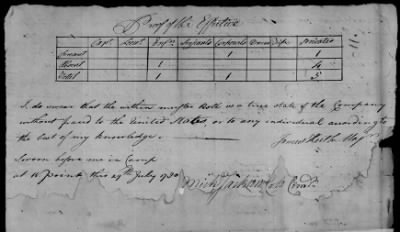 Proof of the Effectives
Capt. Lieut. Ensn. Serjeants Corporals Drum Fife privates
Present 1 1
Absent 1 4
Total 1 1 5
I do swear that the within muster Roll is a true state of the Company
without fraud to the United States, or to any individual according to
the best of my knowledge.
James Keith Maj
Sworn before me in Camp
at W point this 29th July 1780
Mich Jackson Colo